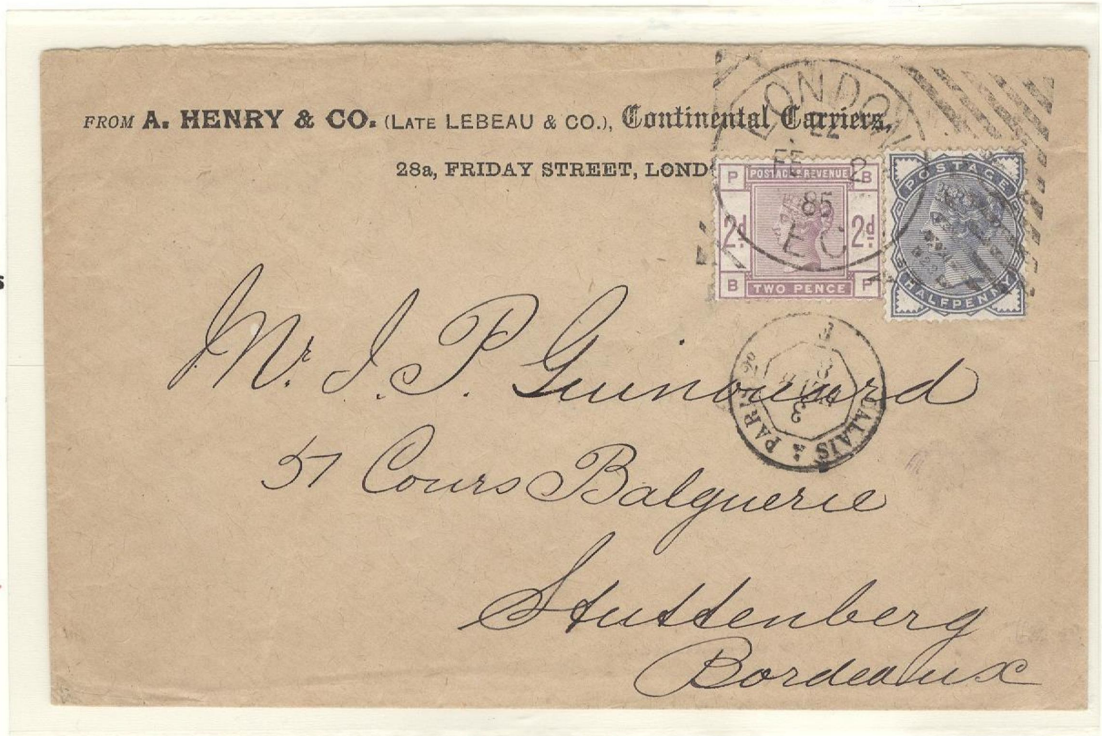 FROM A. HENRY & CO. (LATE LEBEAU & CO.), Continental Carriers,
28a, FRIDAY STREET, LOND
LONDON
FE 2
85
E C
P POSTAGE & REVENUE B
2d 2d
B TWO PENCE P
POSTAGE
HALFPENNY
CALAIS A PARIS
3
Mr. J. P. Guinouard
57 Cours Balguerie
Stuttenberg
Bordeaux